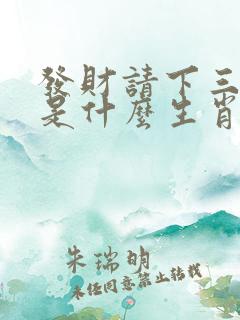 發財請下三
是什麼生肖
朱瑞明
未任同意禁止转载